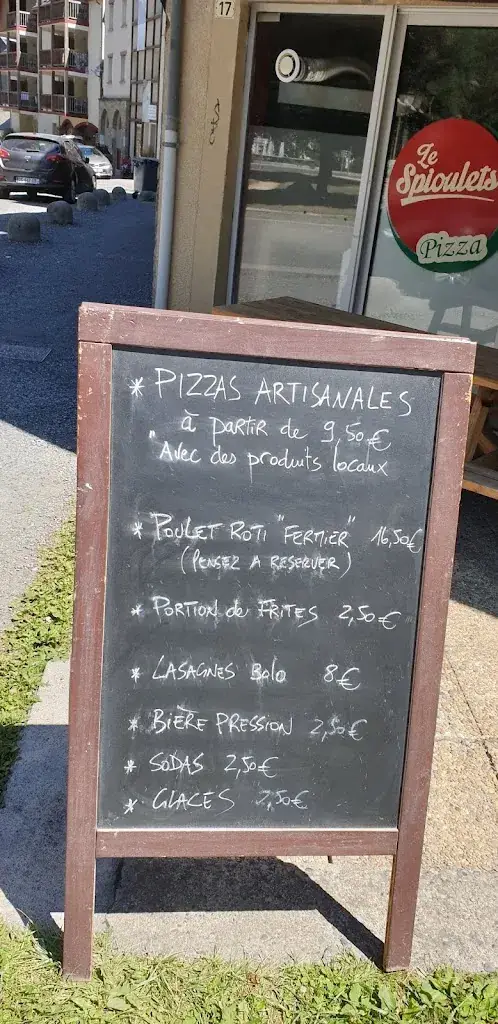 17
Le
Spioulets
Pizza
* PIZZAS ARTISANALES
à partir de 9,50€
"Avec des produits locaux
* POULET ROTI "FERMIER" 16,50€
(PENSEZ A RESERVER)
* PORTION de FRITES 2,50€
* LASAGNES Bolo 8€
* BIÈRE PRESSION 2,50€
* SODAS 2,50€
* GLACES 2,50€